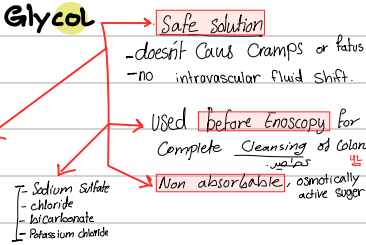 Glycol
Safe solution
-doesn't Caus Cramps or fatus
-no intravascular fluid shift.
used before Enoscopy for
Complete Cleansing of Colon
Non absorbable, osmotically
active suger
- Sodium sulfate
- chloride
- bicarbonate
- Potassium chloride